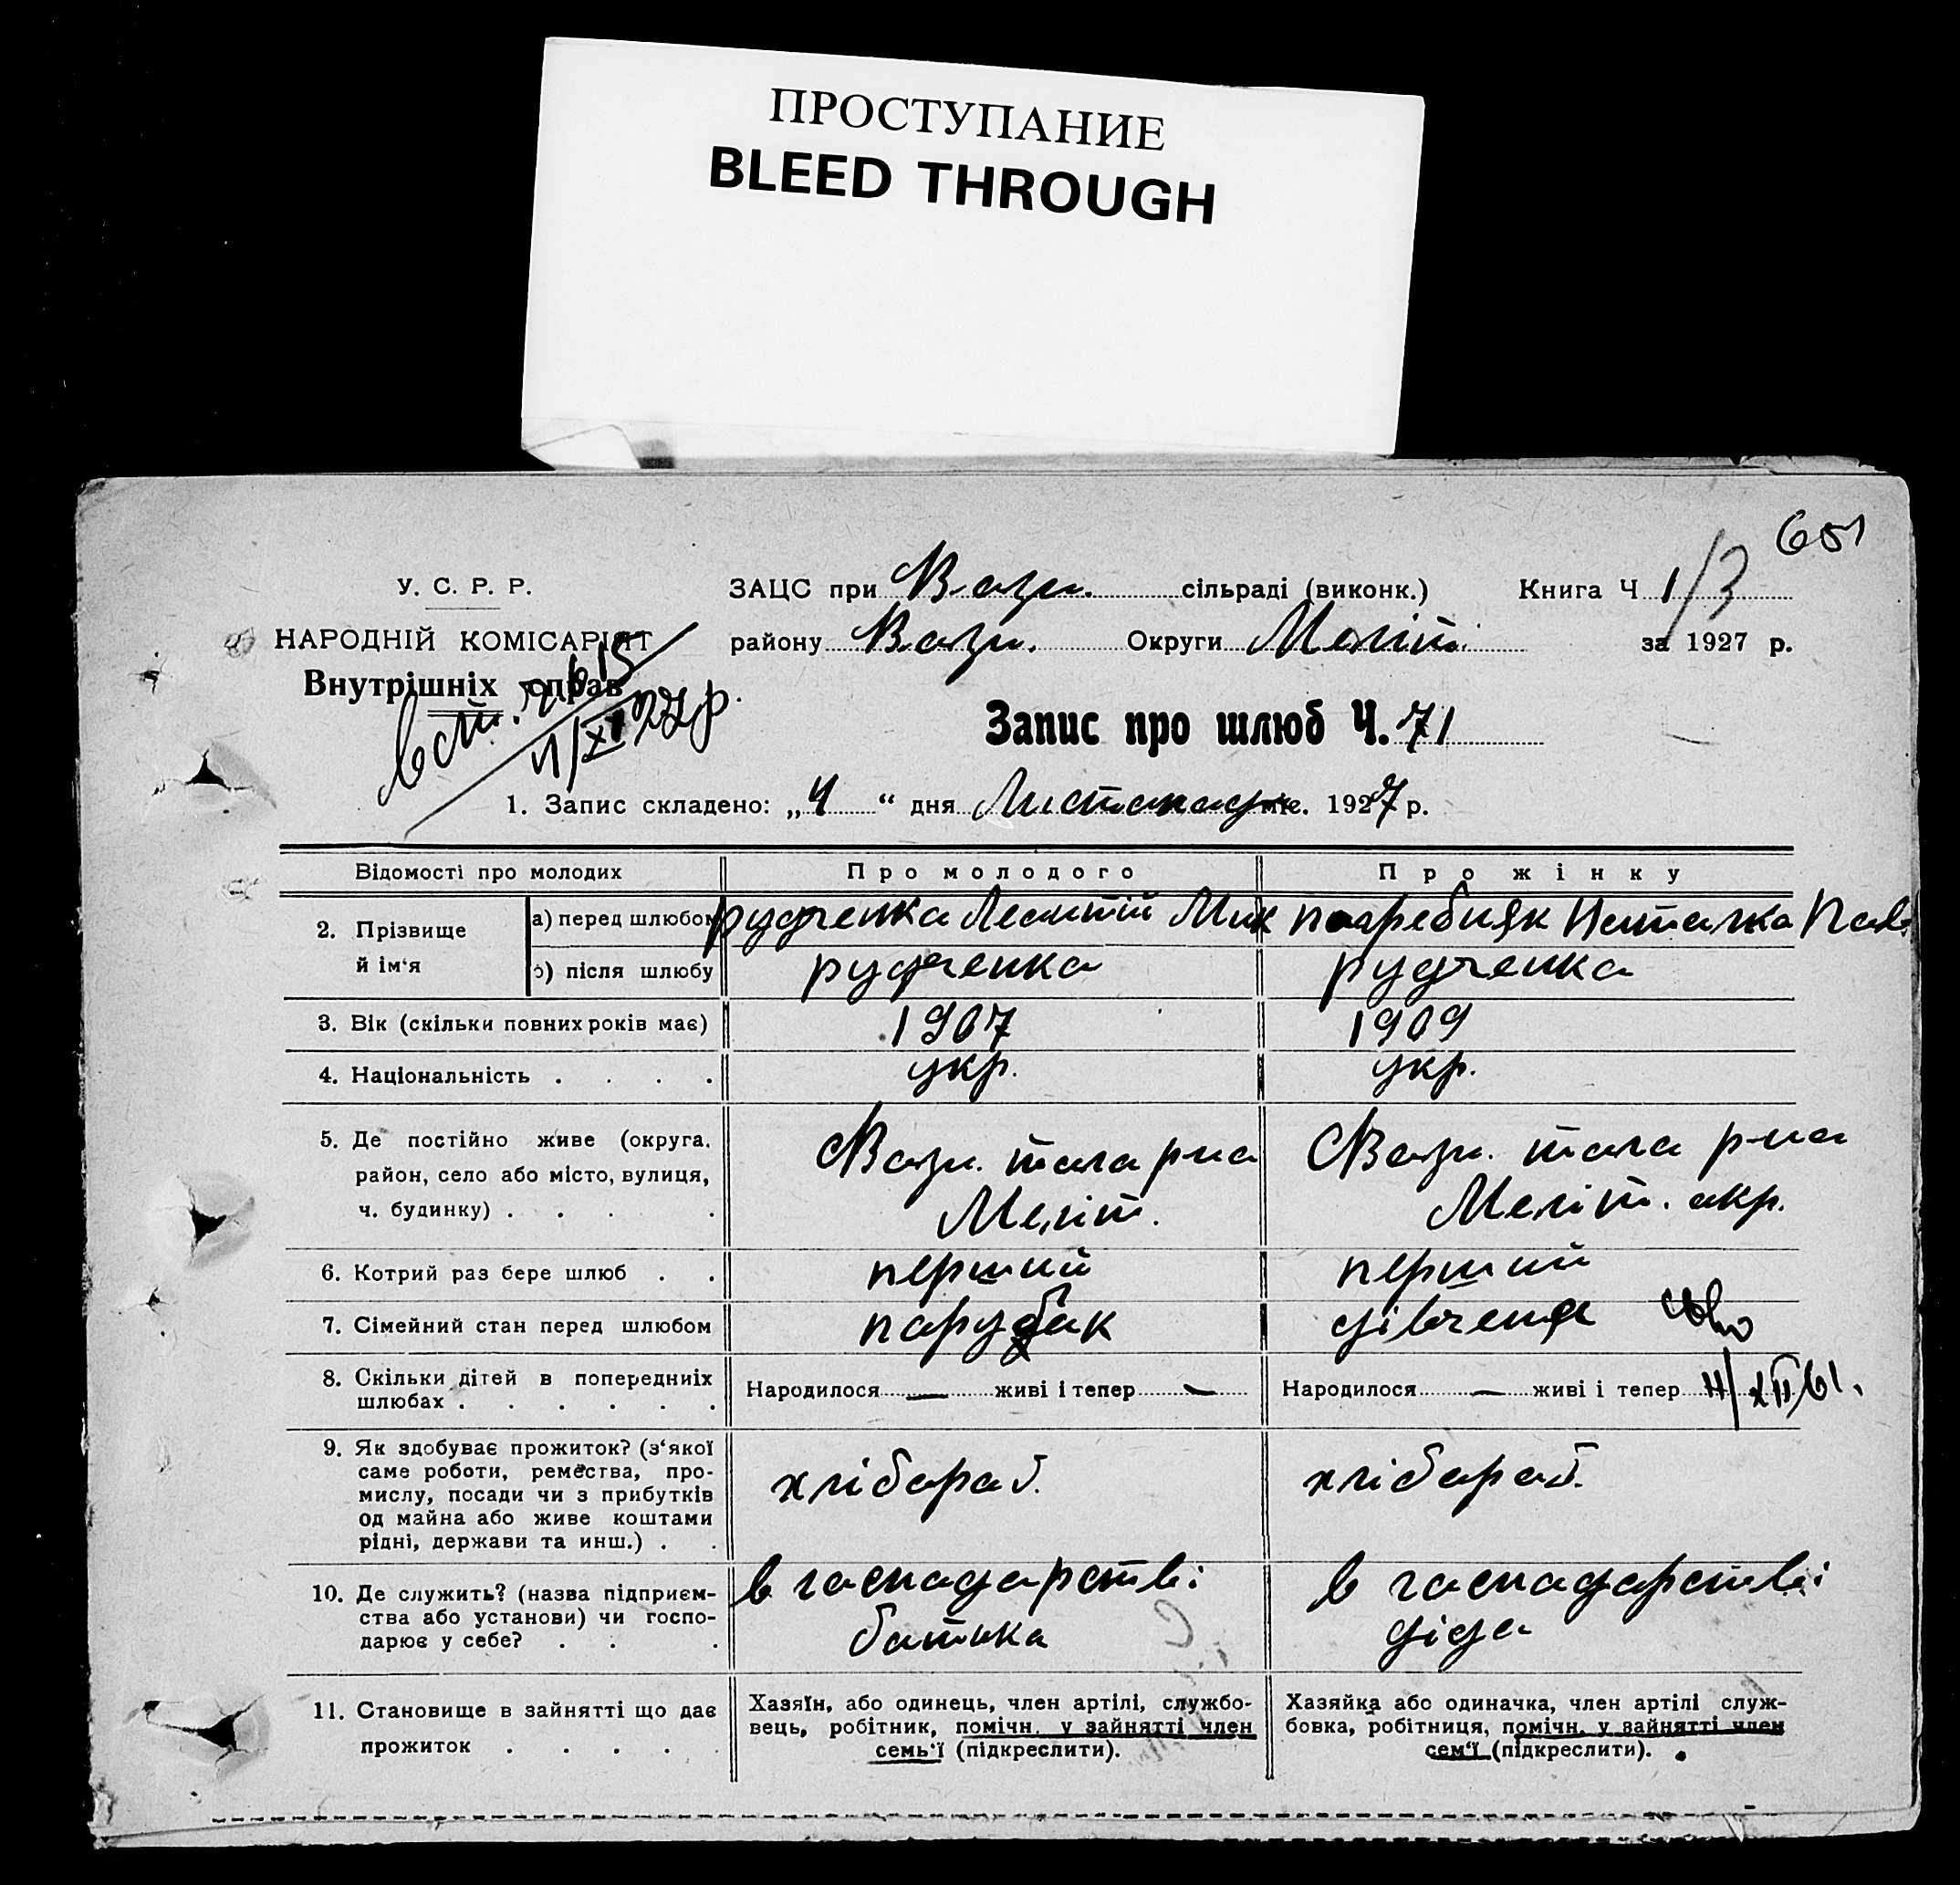 ПРОСТУПАНИЕ
BLEED THROUGH
651
У. С. Р. Р.
НАРОДНІЙ КОМІСАРІЯТ
Внутрішніх справ
ЗАЦС при Возн. сільраді (виконк.) Книга Ч 1/3
району Возн. Округи Меліт. за 1927 р.
Запис про шлюб Ч. 71
1. Запис складено: „4“ дня Листопад міс. 1927 р.
Відомості про молодих
Про молодого
Про жінку
2. Прізвище й ім'я
а) перед шлюбом
рудченко Леонтій Мик
погребняк Наталка Пав.
б) після шлюбу
рудченко
рудченко
3. Вік (скільки повних років має)
1907
1909
4. Національність
укр.
укр.
5. Де постійно живе (округа,
район, село або місто, вулиця,
ч. будинку)
Возн. того р-на
Меліт.
Возн. того р-на
Меліт. окр.
6. Котрий раз бере шлюб
перший
перший
7. Сімейний стан перед шлюбом
парубок
дівченя
8. Скільки дітей в попередниіх
шлюбах
Народилося — живі і тепер —
Народилося — живі і тепер
9. Як здобуває прожиток? (з'якої
саме роботи, ремества, про-
мислу, посади чи з прибутків
од майна або живе коштами
рідні, держави та инш.)
хлібороб.
хлібороб.
10. Де служить? (назва підприєм-
ства або установи) чи госпо-
дарює у себе?
в господарстві
батька
в господарстві
діда
11. Становище в зайнятті що дає
прожиток
Хазяїн, або одинець, член артілі, службо-
вець, робітник, помічн. у зайнятті член
семь'ї (підкреслити).
Хазяйка або одиначка, член артілі служ-
бовка, робітниця, помічн. у зайнятті член
сем'ї (підкреслити).